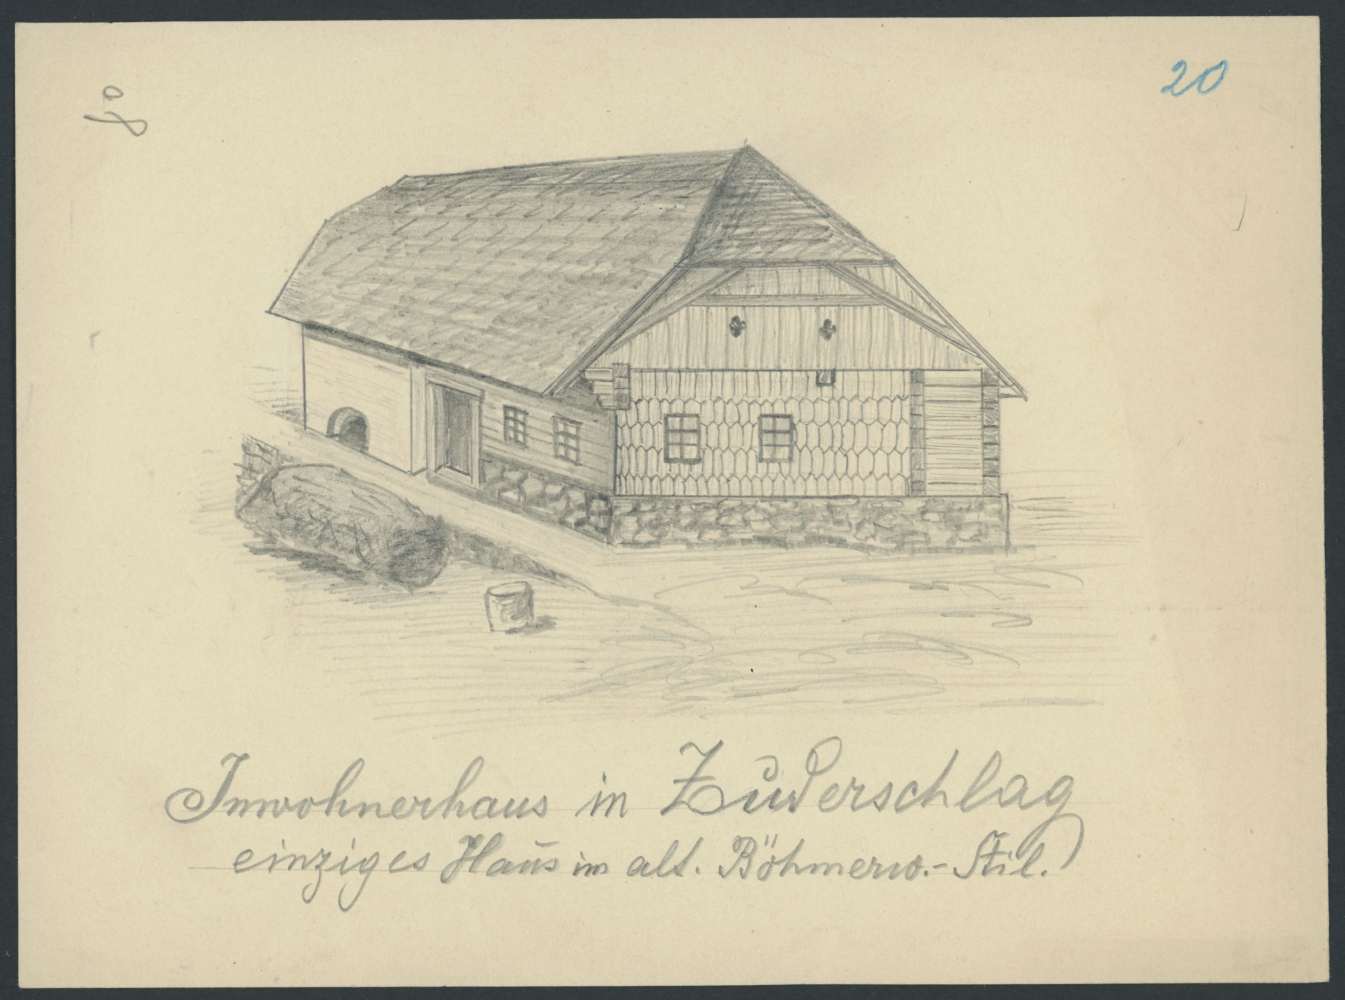 20
Inwohnerhaus in Zuderschlag
einziges Haus im alt. Böhmerw.-Stil.